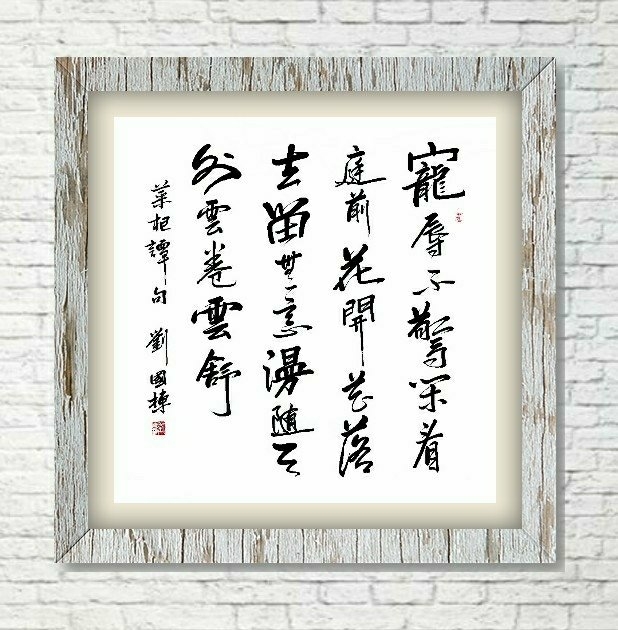 寵辱不驚閑看
庭前花開花落
去留無意漫随天
外雲卷雲舒
菜根譚句 劉國棟